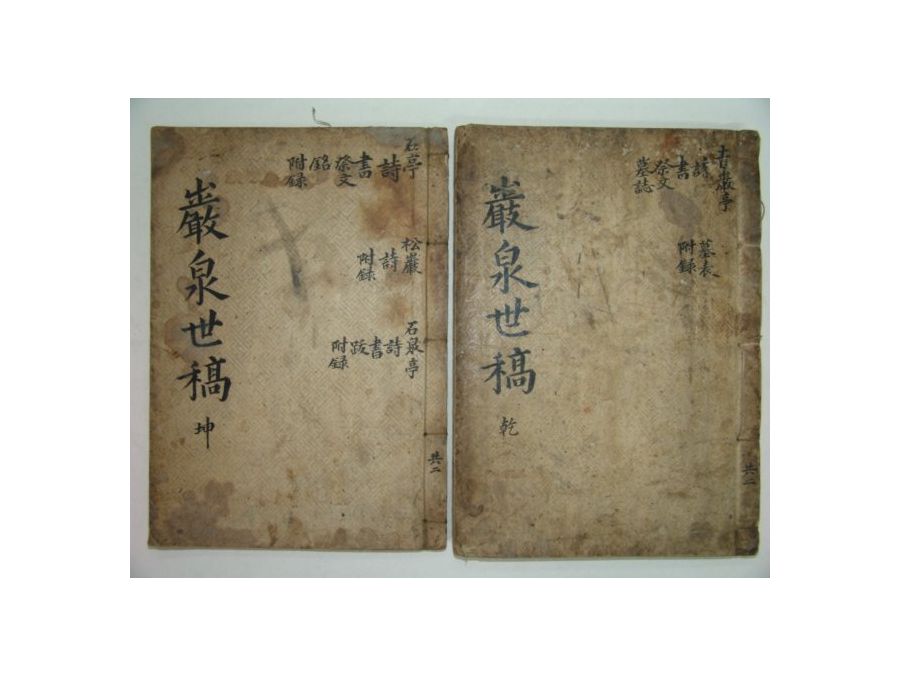 青巖亭
詩
書
祭文
墓誌
墓表
附録
共二
巖泉世稿
乾
石亭
詩
書
祭文
銘
附録
松巖
詩
附録
石泉亭
詩
書
跋
附録
共二
巖泉世稿
坤